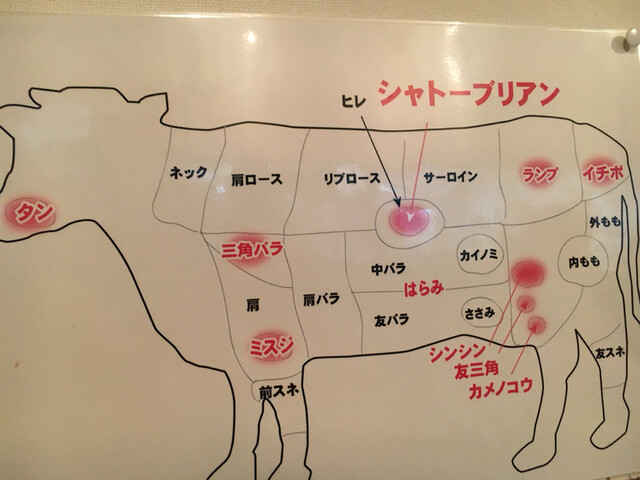 ヒレ
シャトーブリアン
ネック
肩ロース
リブロース
サーロイン
ランプ
イチボ
タン
三角バラ
中バラ
カイノミ
外もも
内もも
はらみ
肩
肩バラ
友バラ
ささみ
ミスジ
シンシン
友三角
カメノコウ
前スネ
友スネ